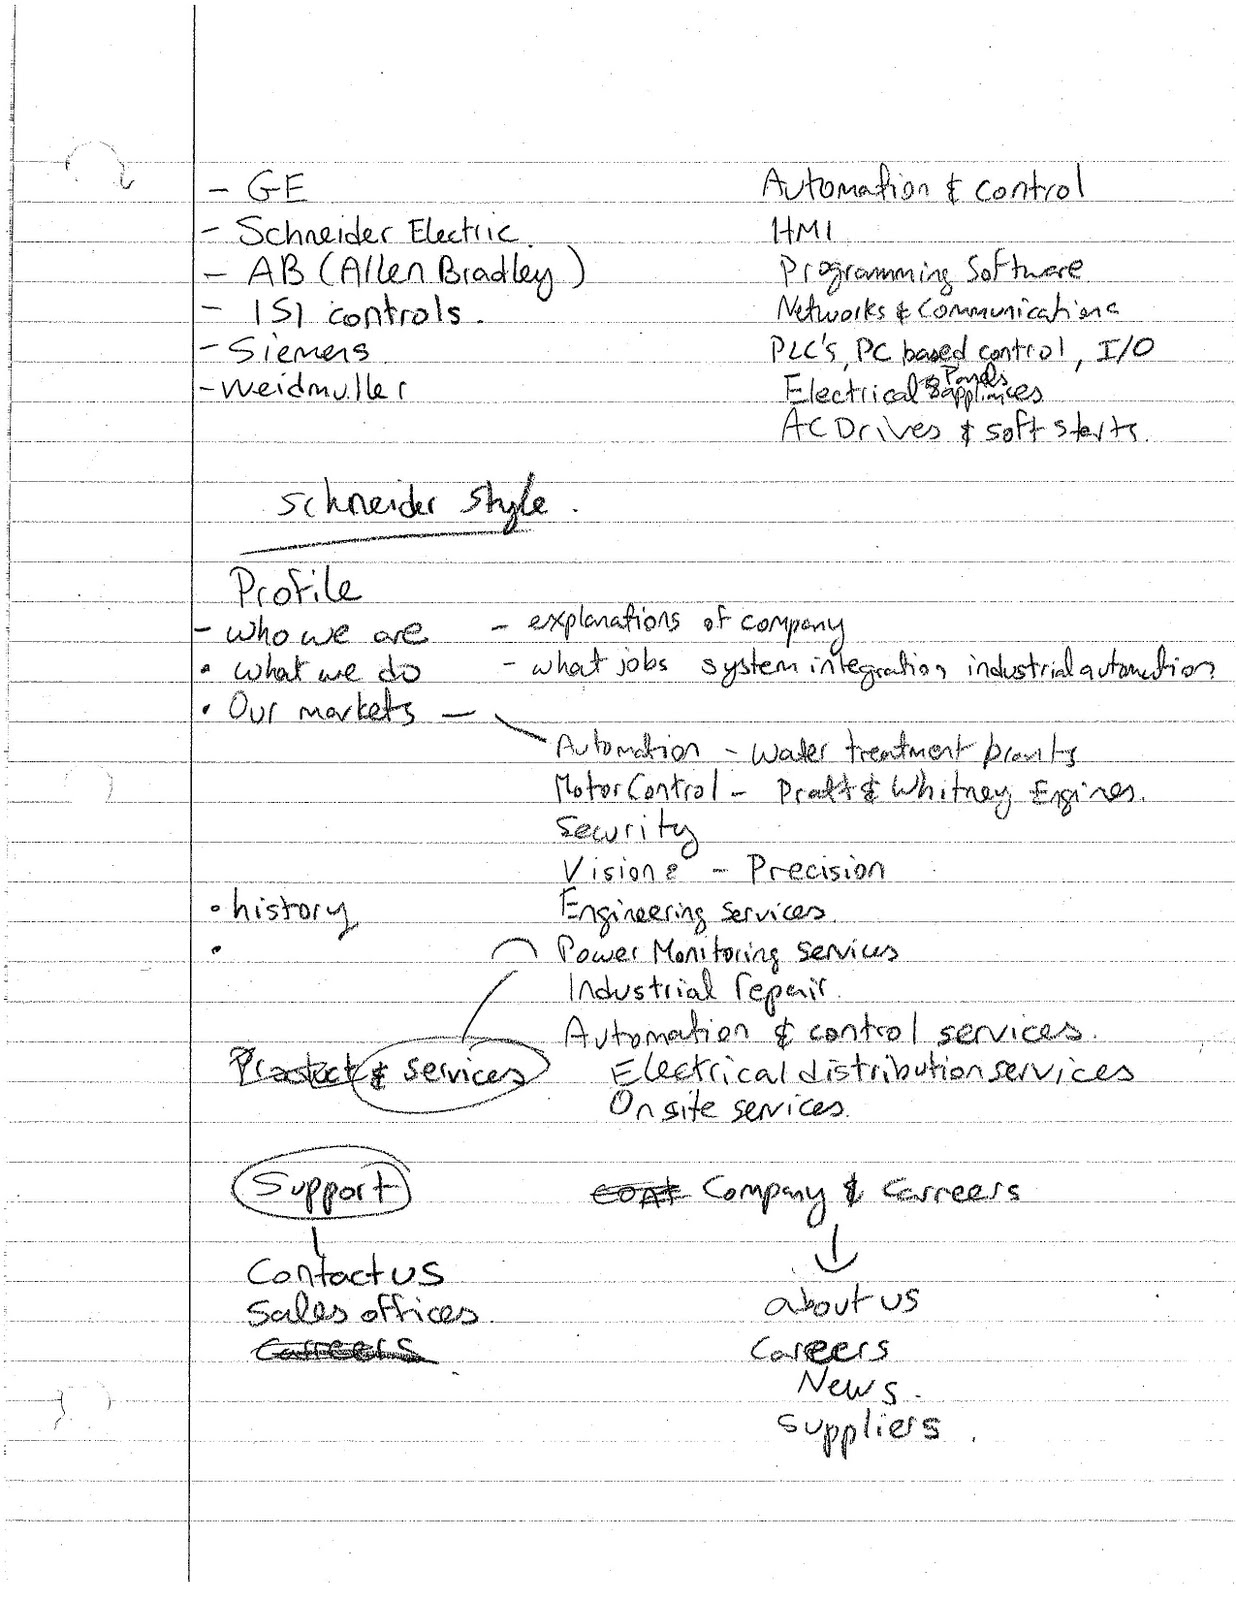 - GE Automation & control
- Schneider Electric. HMI
- AB (Allen Bradley) Programming Software
- ISI controls. Networks & Communications
- Siemens PLC's, PC based control, I/O
- Weidmuller Electrical & Panels & appliances
AC Drives & soft starts.
Schneider Style.
Profile
- who we are - explanations of company
• what we do - what jobs system integration, industrial automation
• Our markets -
Automation - water treatment plants
Motor Control - Pratt & Whitney Engines.
Security
Vision - Precision
• history Engineering services.
• Power Monitoring services
Industrial repair.
Automation & control services.
Product & services Electrical distribution services
On site services.
Support Company & Carreers
Contact us
about us
Sales offices.
Carreers Careers
News.
Suppliers.